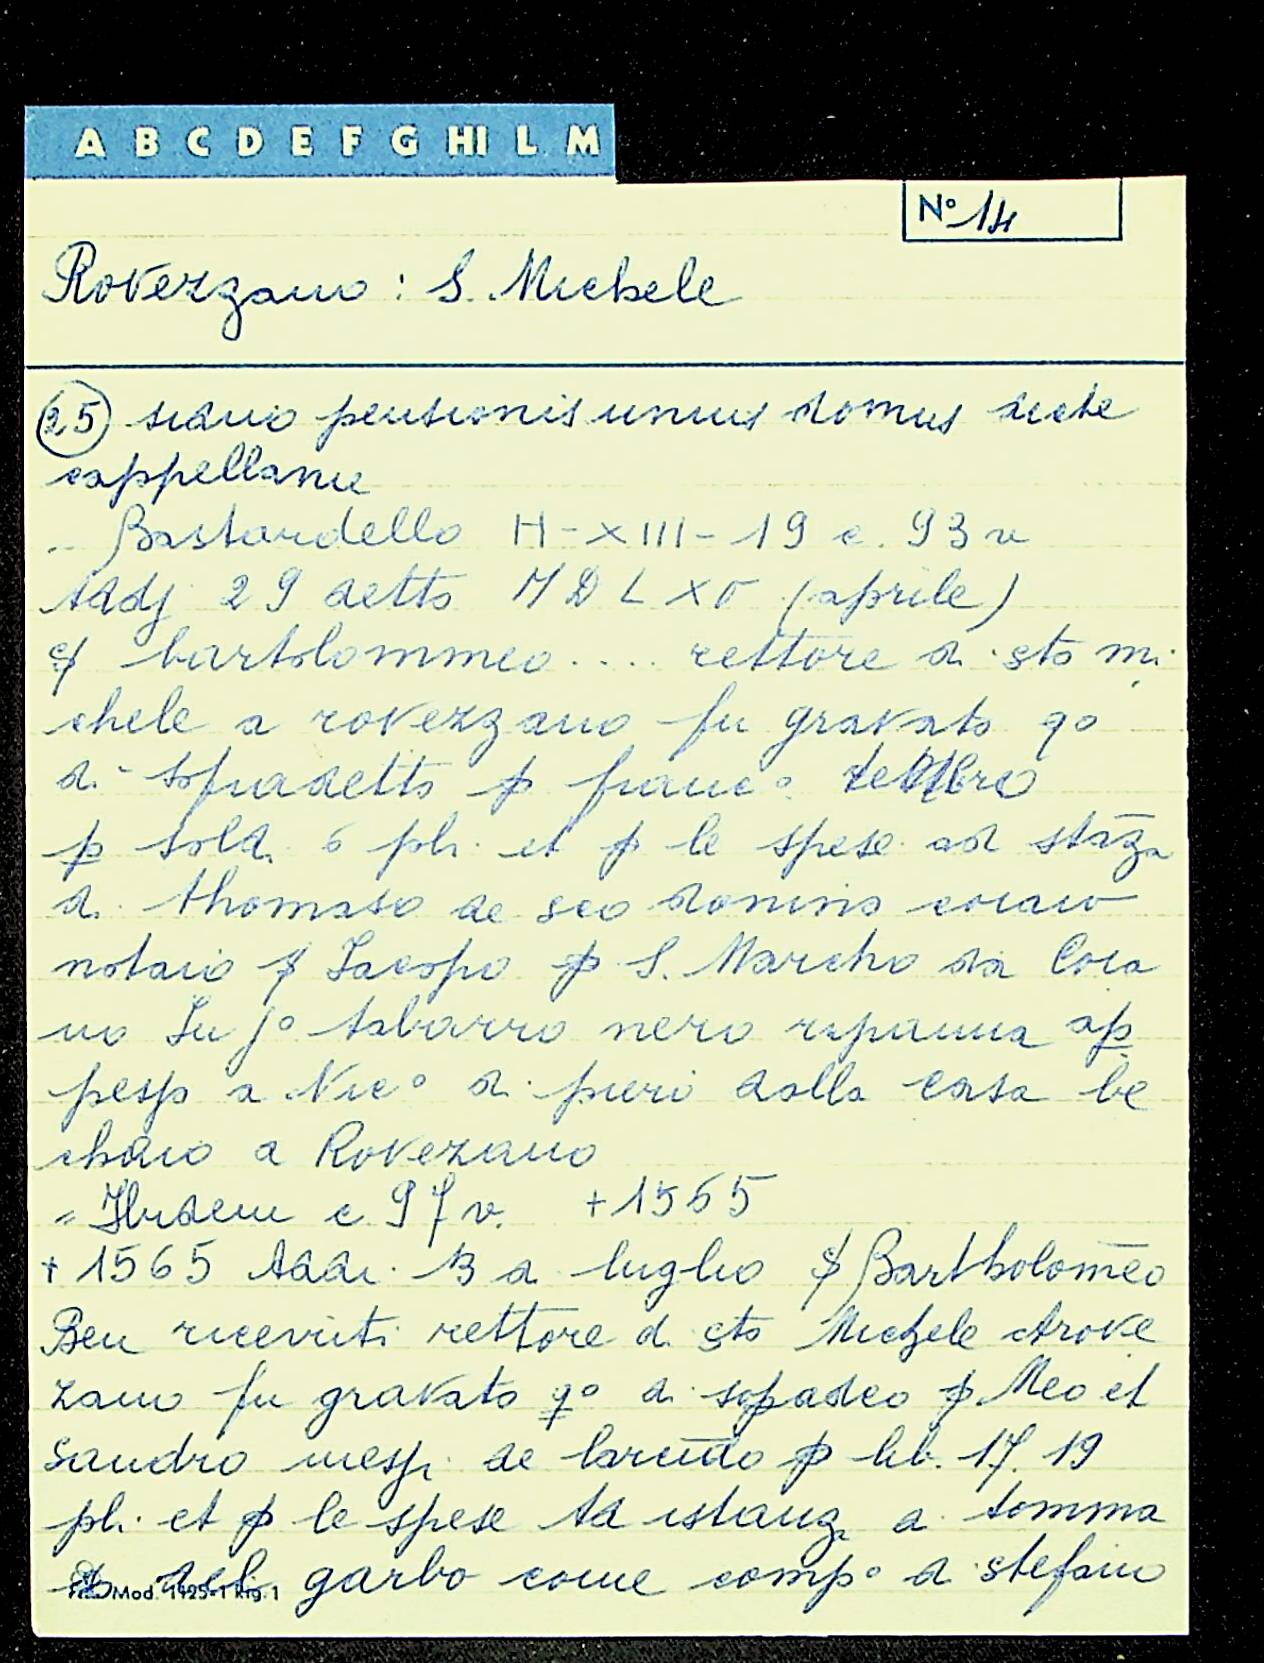 A B C D E F G HI L M
N° 14
Rovezzano : S. Michele
(25) siduo pensionis unius domus dicte
cappellanie
.. Bastardello H-XIII-19 c. 93 v
Addj 29 detto MDLXV (aprile)
bartolommeo .... rettore di sto mi
chele a rovezzano fu gravato qo
di sopradetto p franc°
p sold. 6 pli. et p le spese ad stāza
di thomaso de sco domino
notaio Jacopo S. Marcho da Cora
no In j° tabarro nero
a Nic° di pieri dalla casa be
chaio a Rovezano
= Ibidem c. 97 v. +1565
+ 1565 Addi. 13 di luglio Bartholomēo
Ben ricevuti rettore di sto Michele Arove
zano fu gravato qo di p Meo et
Sandro de p lib. 17. 19
pli. et p le spese Ad istanz. di tomma
so del garbo come comp° di stefano
Mod. 1925-1 Rig. 1